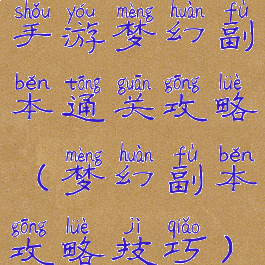 shǒu yóu mèng huàn fù
手游梦幻副
běn tōng guān gōng lüè
本通关攻略
mèng huàn fù běn
（梦幻副本
gōng lüè jì qiǎo
攻略技巧）